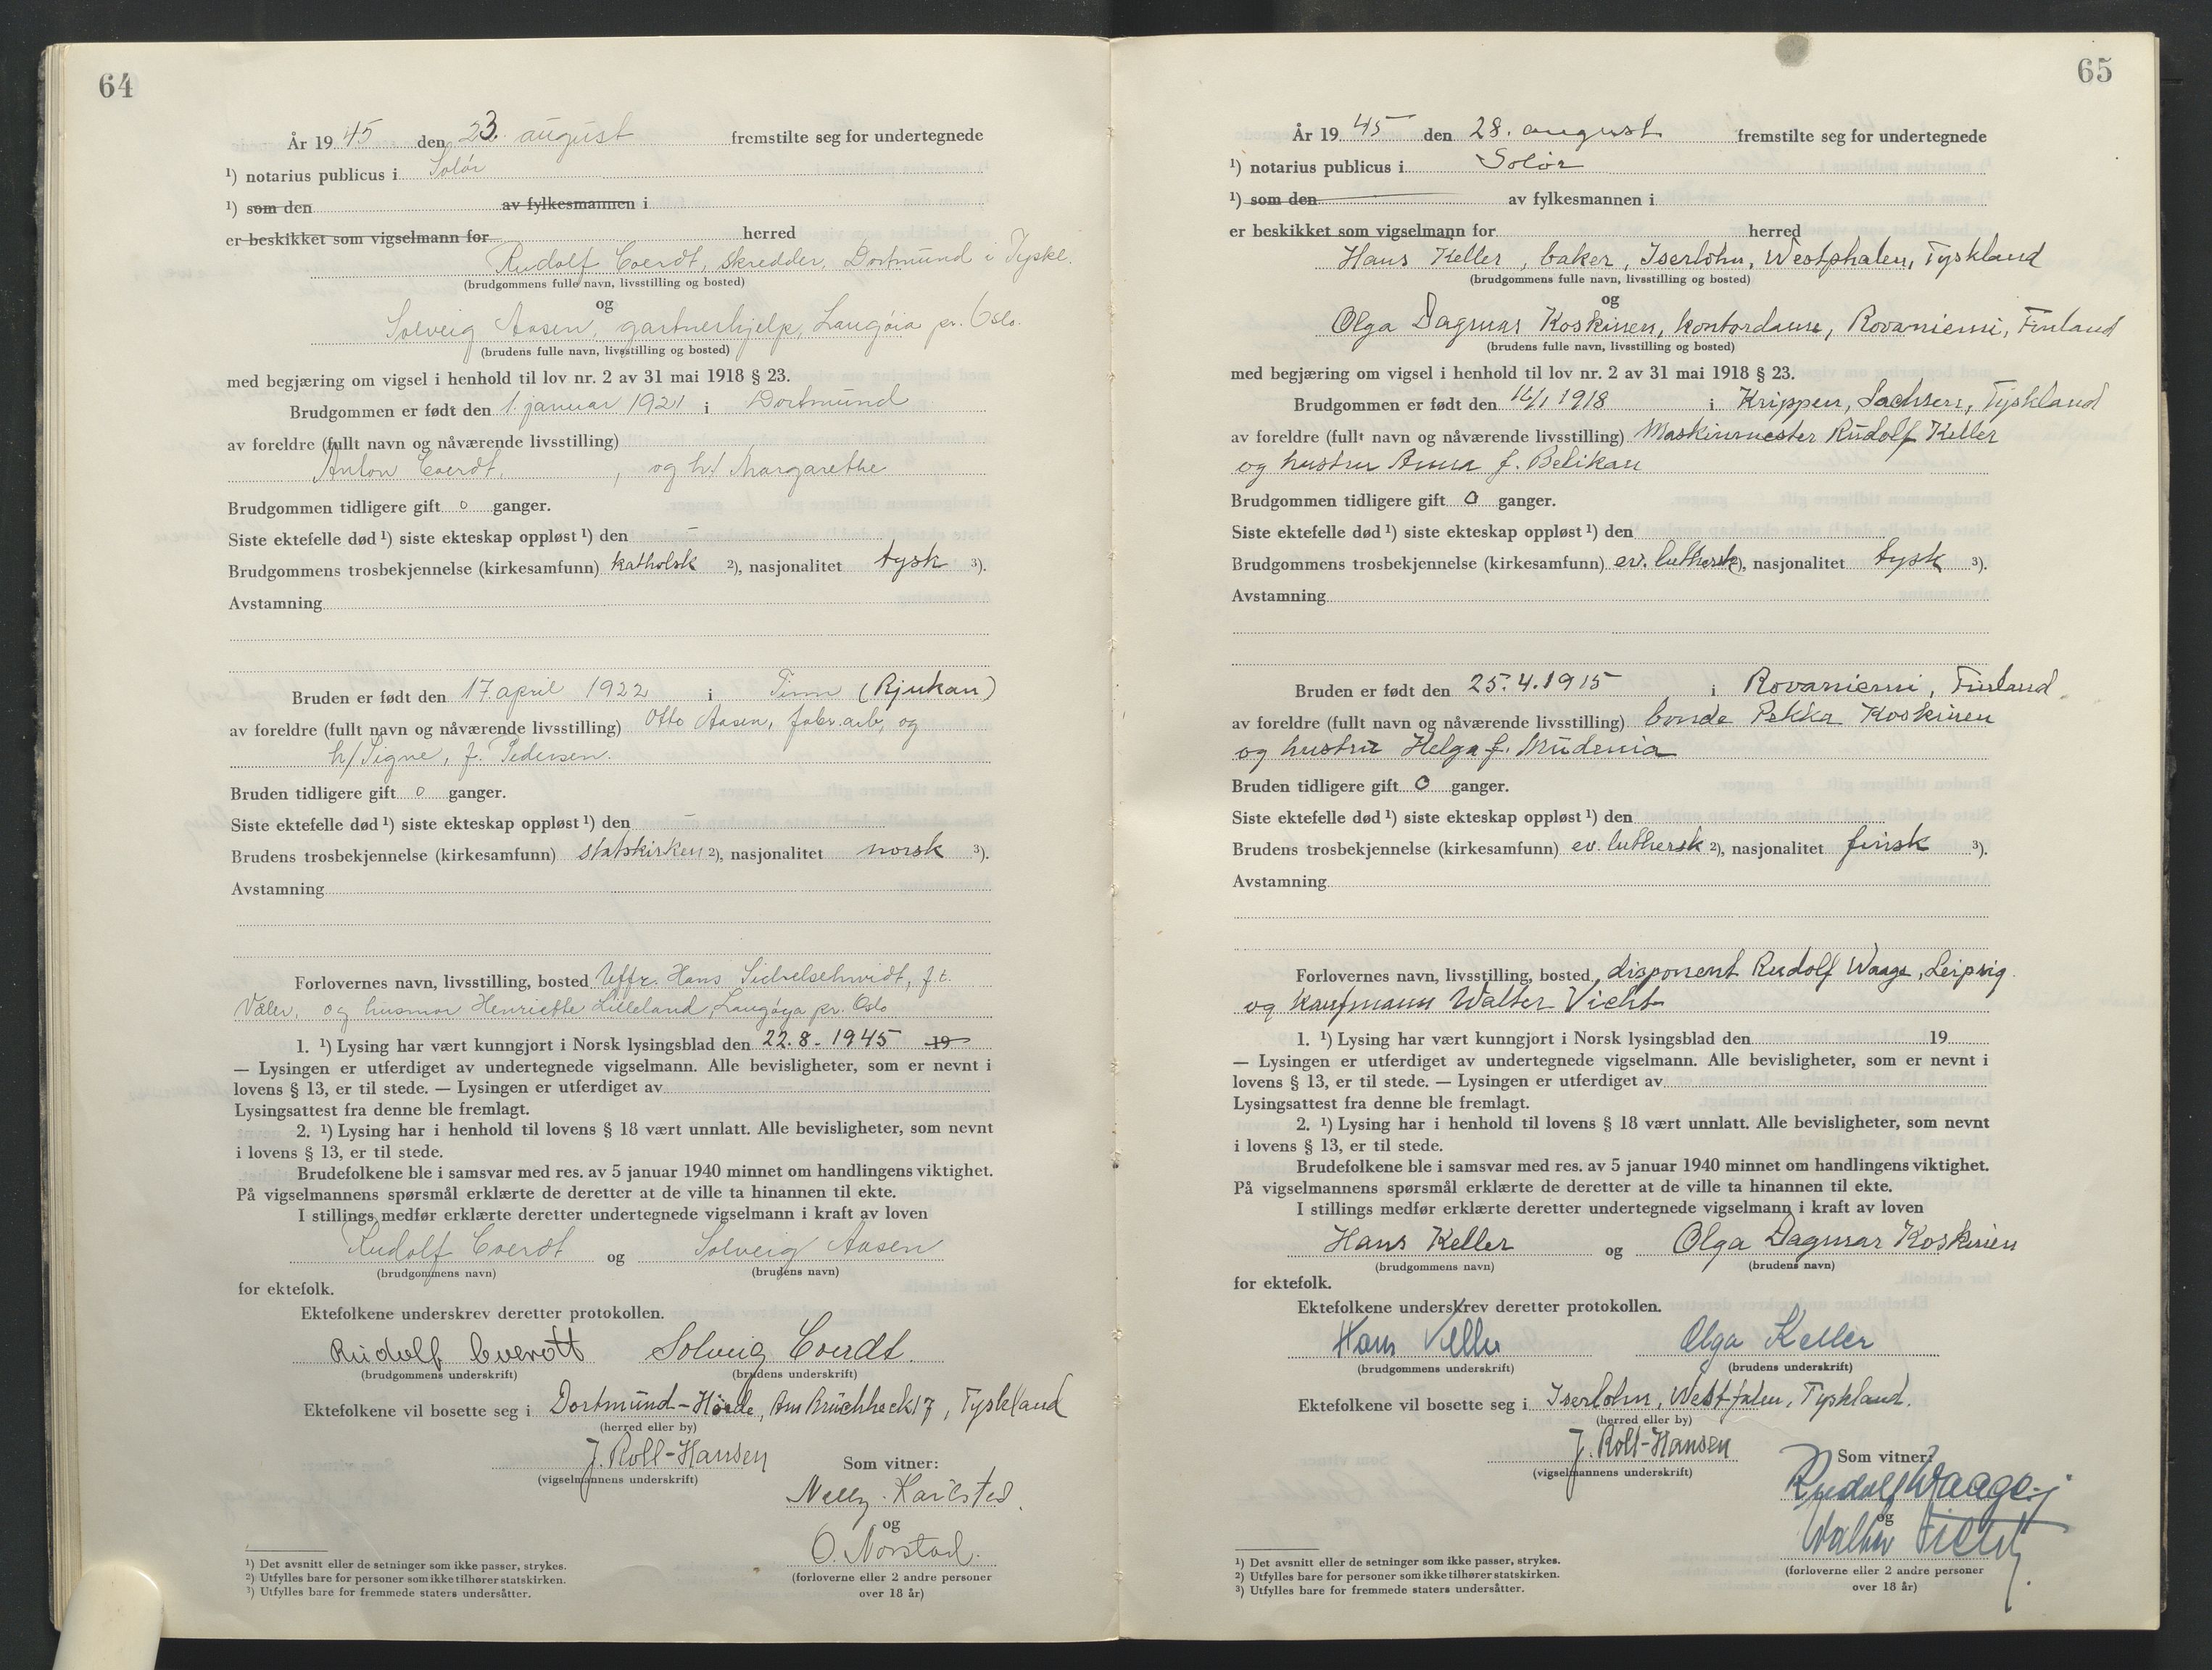 64
År 1945 den 23. august fremstilte seg for undertegnede
¹) notarius publicus i Solør
¹) som den av fylkesmannen i
er beskikket som vigselmann for herred
Rudolf Coerdt, skredder, Dortmund i Tyskl.
(brudgommens fulle navn, livsstilling og bosted)
og
Solveig Aasen, gartnerhjelp, Langøia pr. Oslo.
(brudens fulle navn, livsstilling og bosted)
med begjæring om vigsel i henhold til lov nr. 2 av 31 mai 1918 § 23.
Brudgommen er født den 1. januar 1921 i Dortmund
av foreldre (fullt navn og nåværende livsstilling)
Anton Coerdt, , og h/ Margarethe
Brudgommen tidligere gift 0 ganger.
Siste ektefelle død ¹) siste ekteskap oppløst ¹) den —
Brudgommens trosbekjennelse (kirkesamfunn) katholsk ²), nasjonalitet tysk ³).
Avstamning
Bruden er født den 17. april 1922 i Tinn (Rjukan)
av foreldre (fullt navn og nåværende livsstilling) Otto Aasen, fabr.arb, og
h/ Signe, f. Pedersen.
Bruden tidligere gift 0 ganger.
Siste ektefelle død ¹) siste ekteskap oppløst ¹) den —
Brudens trosbekjennelse (kirkesamfunn) statskirken ²), nasjonalitet norsk ³).
Avstamning
Forlovernes navn, livsstilling, bosted Uffz. Hans, f.t.
Våler, og husmor Henriette Lilleland, Langøya pr. Oslo
1. ¹) Lysing har vært kunngjort i Norsk lysingsblad den 22.8.-1945 19
— Lysingen er utferdiget av undertegnede vigselmann. Alle bevisligheter, som er nevnt i
lovens § 13, er til stede. — Lysingen er utferdiget av
Lysingsattest fra denne ble fremlagt.
2. ¹) Lysing har i henhold til lovens § 18 vært unnlatt. Alle bevisligheter, som nevnt
i lovens § 13, er til stede.
Brudefolkene ble i samsvar med res. av 5 januar 1940 minnet om handlingens viktighet.
På vigselmannens spørsmål erklærte de deretter at de ville ta hinannen til ekte.
I stillings medfør erklærte deretter undertegnede vigselmann i kraft av loven
Rudolf Coerdt og Solveig Aasen
(brudgommens navn) (brudens navn)
for ektefolk.
Ektefolkene underskrev deretter protokollen.
Rudolf Coerdt Solveig Coerdt.
(brudgommens underskrift) (brudens underskrift)
Ektefolkene vil bosette seg i Dortmund-Hörde, Am Bruchheck 17, Tyskland
(herred eller by)
J. Roll-Hansen
(vigselmannens underskrift)
Som vitner:
Nelly Karlsted.
og
O. Norstad.
(forloverne eller 2 andre personer
over 18 år)
¹) Det avsnitt eller de setninger som ikke passer, strykes.
²) Utfylles bare for personer som ikke tilhører statskirken.
³) Utfylles bare for fremmede staters undersåtter.
65
År 1945 den 28. august fremstilte seg for undertegnede
¹) notarius publicus i Solør
¹) som den av fylkesmannen i
er beskikket som vigselmann for herred
Hans Keller, baker, Iserlohn, Westphalen, Tyskland
(brudgommens fulle navn, livsstilling og bosted)
og
Olga Dagmar Koskinen, kontordame, Rovaniemi, Finland
(brudens fulle navn, livsstilling og bosted)
med begjæring om vigsel i henhold til lov nr. 2 av 31 mai 1918 § 23.
Brudgommen er født den 1918 i Krippen, Sachsen, Tyskland
av foreldre (fullt navn og nåværende livsstilling) Maskinmester Rudolf Keller
og hustru Anna f. Belikan
Brudgommen tidligere gift 0 ganger.
Siste ektefelle død ¹) siste ekteskap oppløst ¹) den
Brudgommens trosbekjennelse (kirkesamfunn) ev. luthersk ²), nasjonalitet tysk ³).
Avstamning
Bruden er født den 25.4.1915 i Rovaniemi, Finland.
av foreldre (fullt navn og nåværende livsstilling) bonde Pekka Koskinen
og hustru Helga f. Mudenia
Bruden tidligere gift 0 ganger.
Siste ektefelle død ¹) siste ekteskap oppløst ¹) den
Brudens trosbekjennelse (kirkesamfunn) ev. luthersk ²), nasjonalitet finsk ³).
Avstamning
Forlovernes navn, livsstilling, bosted disponent Rudolf Waage, Leipzig.
og Kaufmann Walter Vicht
1. ¹) Lysing har vært kunngjort i Norsk lysingsblad den 19
— Lysingen er utferdiget av undertegnede vigselmann. Alle bevisligheter, som er nevnt i
lovens § 13, er til stede. — Lysingen er utferdiget av
Lysingsattest fra denne ble fremlagt.
2. ¹) Lysing har i henhold til lovens § 18 vært unnlatt. Alle bevisligheter, som nevnt
i lovens § 13, er til stede.
Brudefolkene ble i samsvar med res. av 5 januar 1940 minnet om handlingens viktighet.
På vigselmannens spørsmål erklærte de deretter at de ville ta hinannen til ekte.
I stillings medfør erklærte deretter undertegnede vigselmann i kraft av loven
Hans Keller og Olga Dagmar Koskinen
(brudgommens navn) (brudens navn)
for ektefolk.
Ektefolkene underskrev deretter protokollen.
Hans Keller Olga Keller
(brudgommens underskrift) (brudens underskrift)
Ektefolkene vil bosette seg i Iserlohn, Westfalen, Tyskland.
(herred eller by)
J. Roll-Hansen
(vigselmannens underskrift)
Som vitner:
Rudolf Waage
og
Walter Vicht
(forloverne eller 2 andre personer
over 18 år)
¹) Det avsnitt eller de setninger som ikke passer, strykes.
²) Utfylles bare for personer som ikke tilhører statskirken.
³) Utfylles bare for fremmede staters undersåtter.